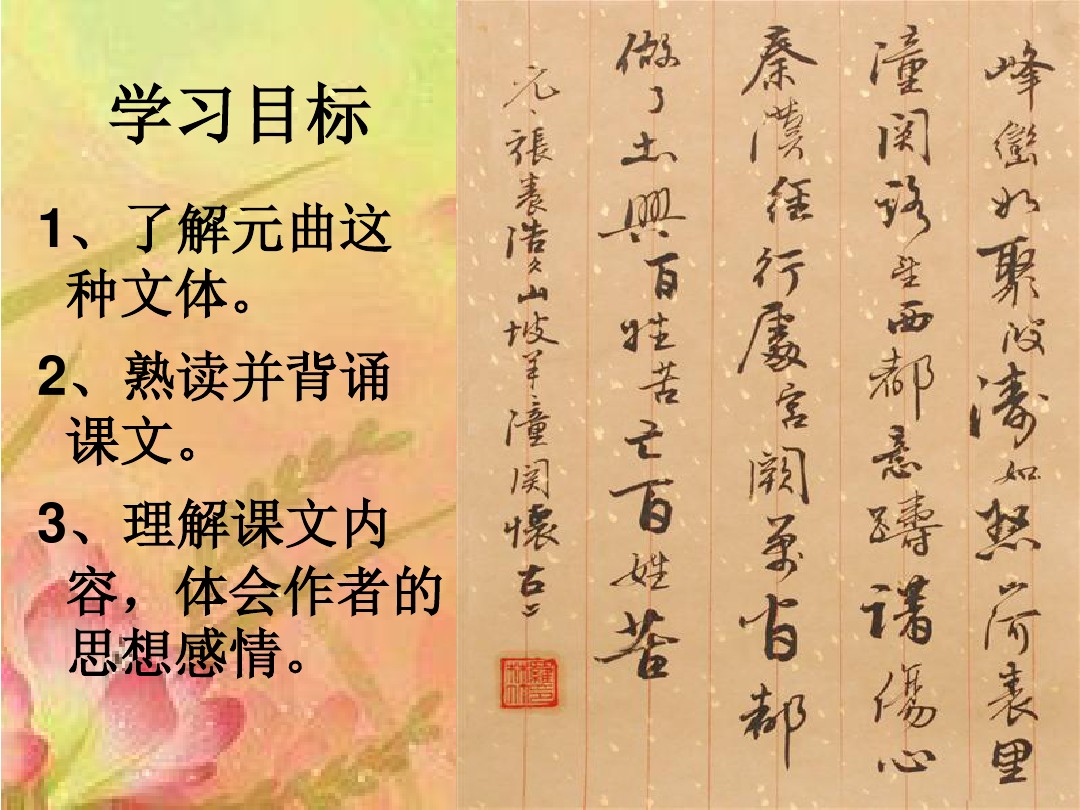 学习目标
1、了解元曲这
种文体。
2、熟读并背诵
课文。
3、理解课文内
容，体会作者的
思想感情。
峰巒如聚波濤如怒山河表里
潼関路望西都意躊躇傷心
秦漢經行處宮闕萬間都
做了土興百姓苦亡百姓苦
元張養浩山坡羊潼関懷古